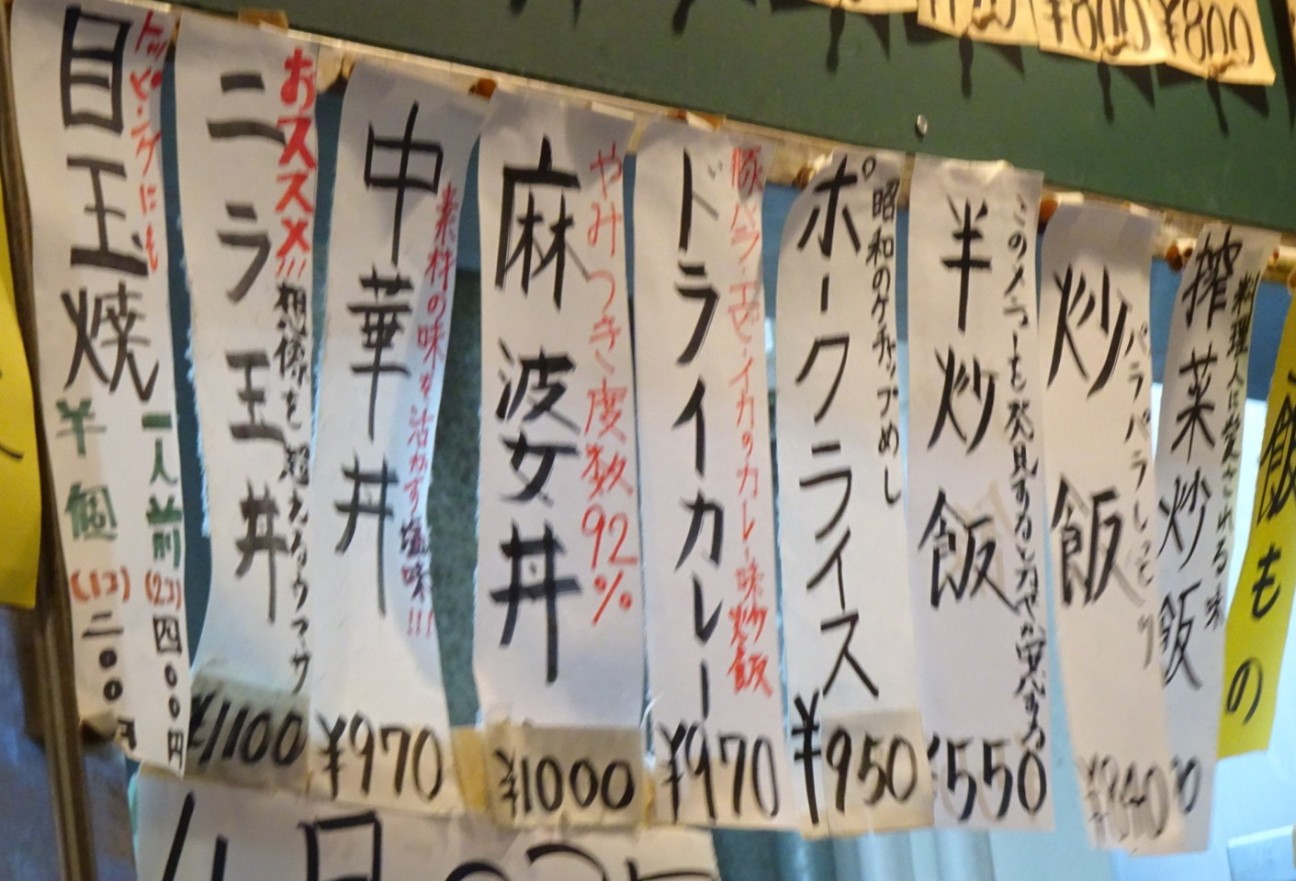 ¥800
¥800
飯もの
料理人に愛される味
搾菜炒飯
パラパラしっとり
炒飯
半炒飯
¥550
昭和のケチャップめし
ポークライス
¥950
豚バラ・エビ・イカのカレー味炒飯
ドライカレー
¥970
やみつき度数92%
麻波女丼
¥1000
素材の味を活かす塩味!!!
中華丼
¥970
おススメ!!!想像を超えたウマサ
ニラ玉丼
¥1100
トッピングにも
目玉焼
一人前(2コ)四〇〇円
半個(1コ)二〇〇円